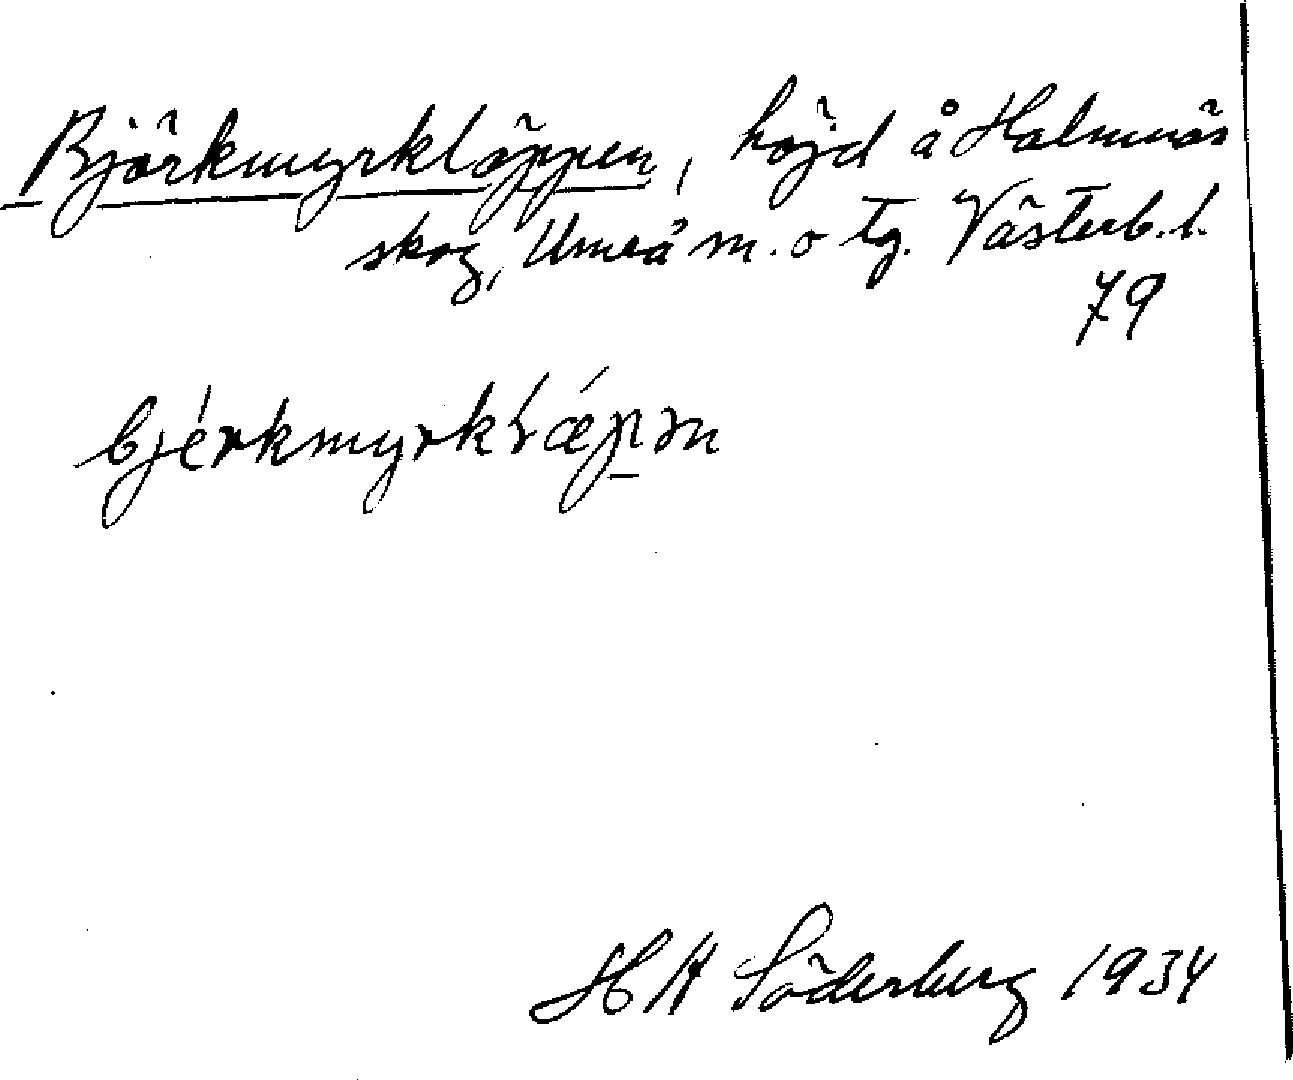 Björkmyrkläppen, höjd å Holmnäs
skog, Umeå m. o tg. Västerb. l.
79
bjérkmyrkłæ´pən
HH Söderberg 1934